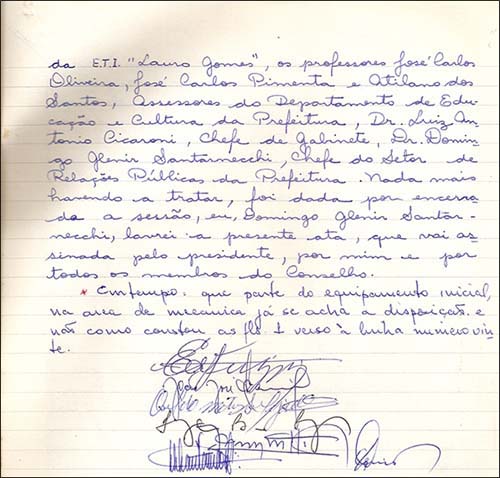 da E.T.I. "Lauro Gomes", os professores José Carlos
Oliveira, José Carlos Pimenta e Atilano dos
Santos, Assessores do Departamento de Edu-
cação e Cultura da Prefeitura, Dr. Luiz An-
tonio Cicaroni, Chefe de Gabinete, Dr. Domin-
go Glenir Santarnecchi, Chefe do Setor de
Relações Públicas da Prefeitura. Nada mais
havendo a tratar, foi dada por encerra-
da a sessão, eu, Domingo Glenir Santar-
necchi, lavrei a presente ata, que vai as-
sinada pelo presidente, por mim e por
todos os membros do Conselho.
* Em tempo: que parte do equipamento inicial,
na area de mecanica já se acha a disposição e
não como constou as fls 1 verso à linha numero vin-
te.